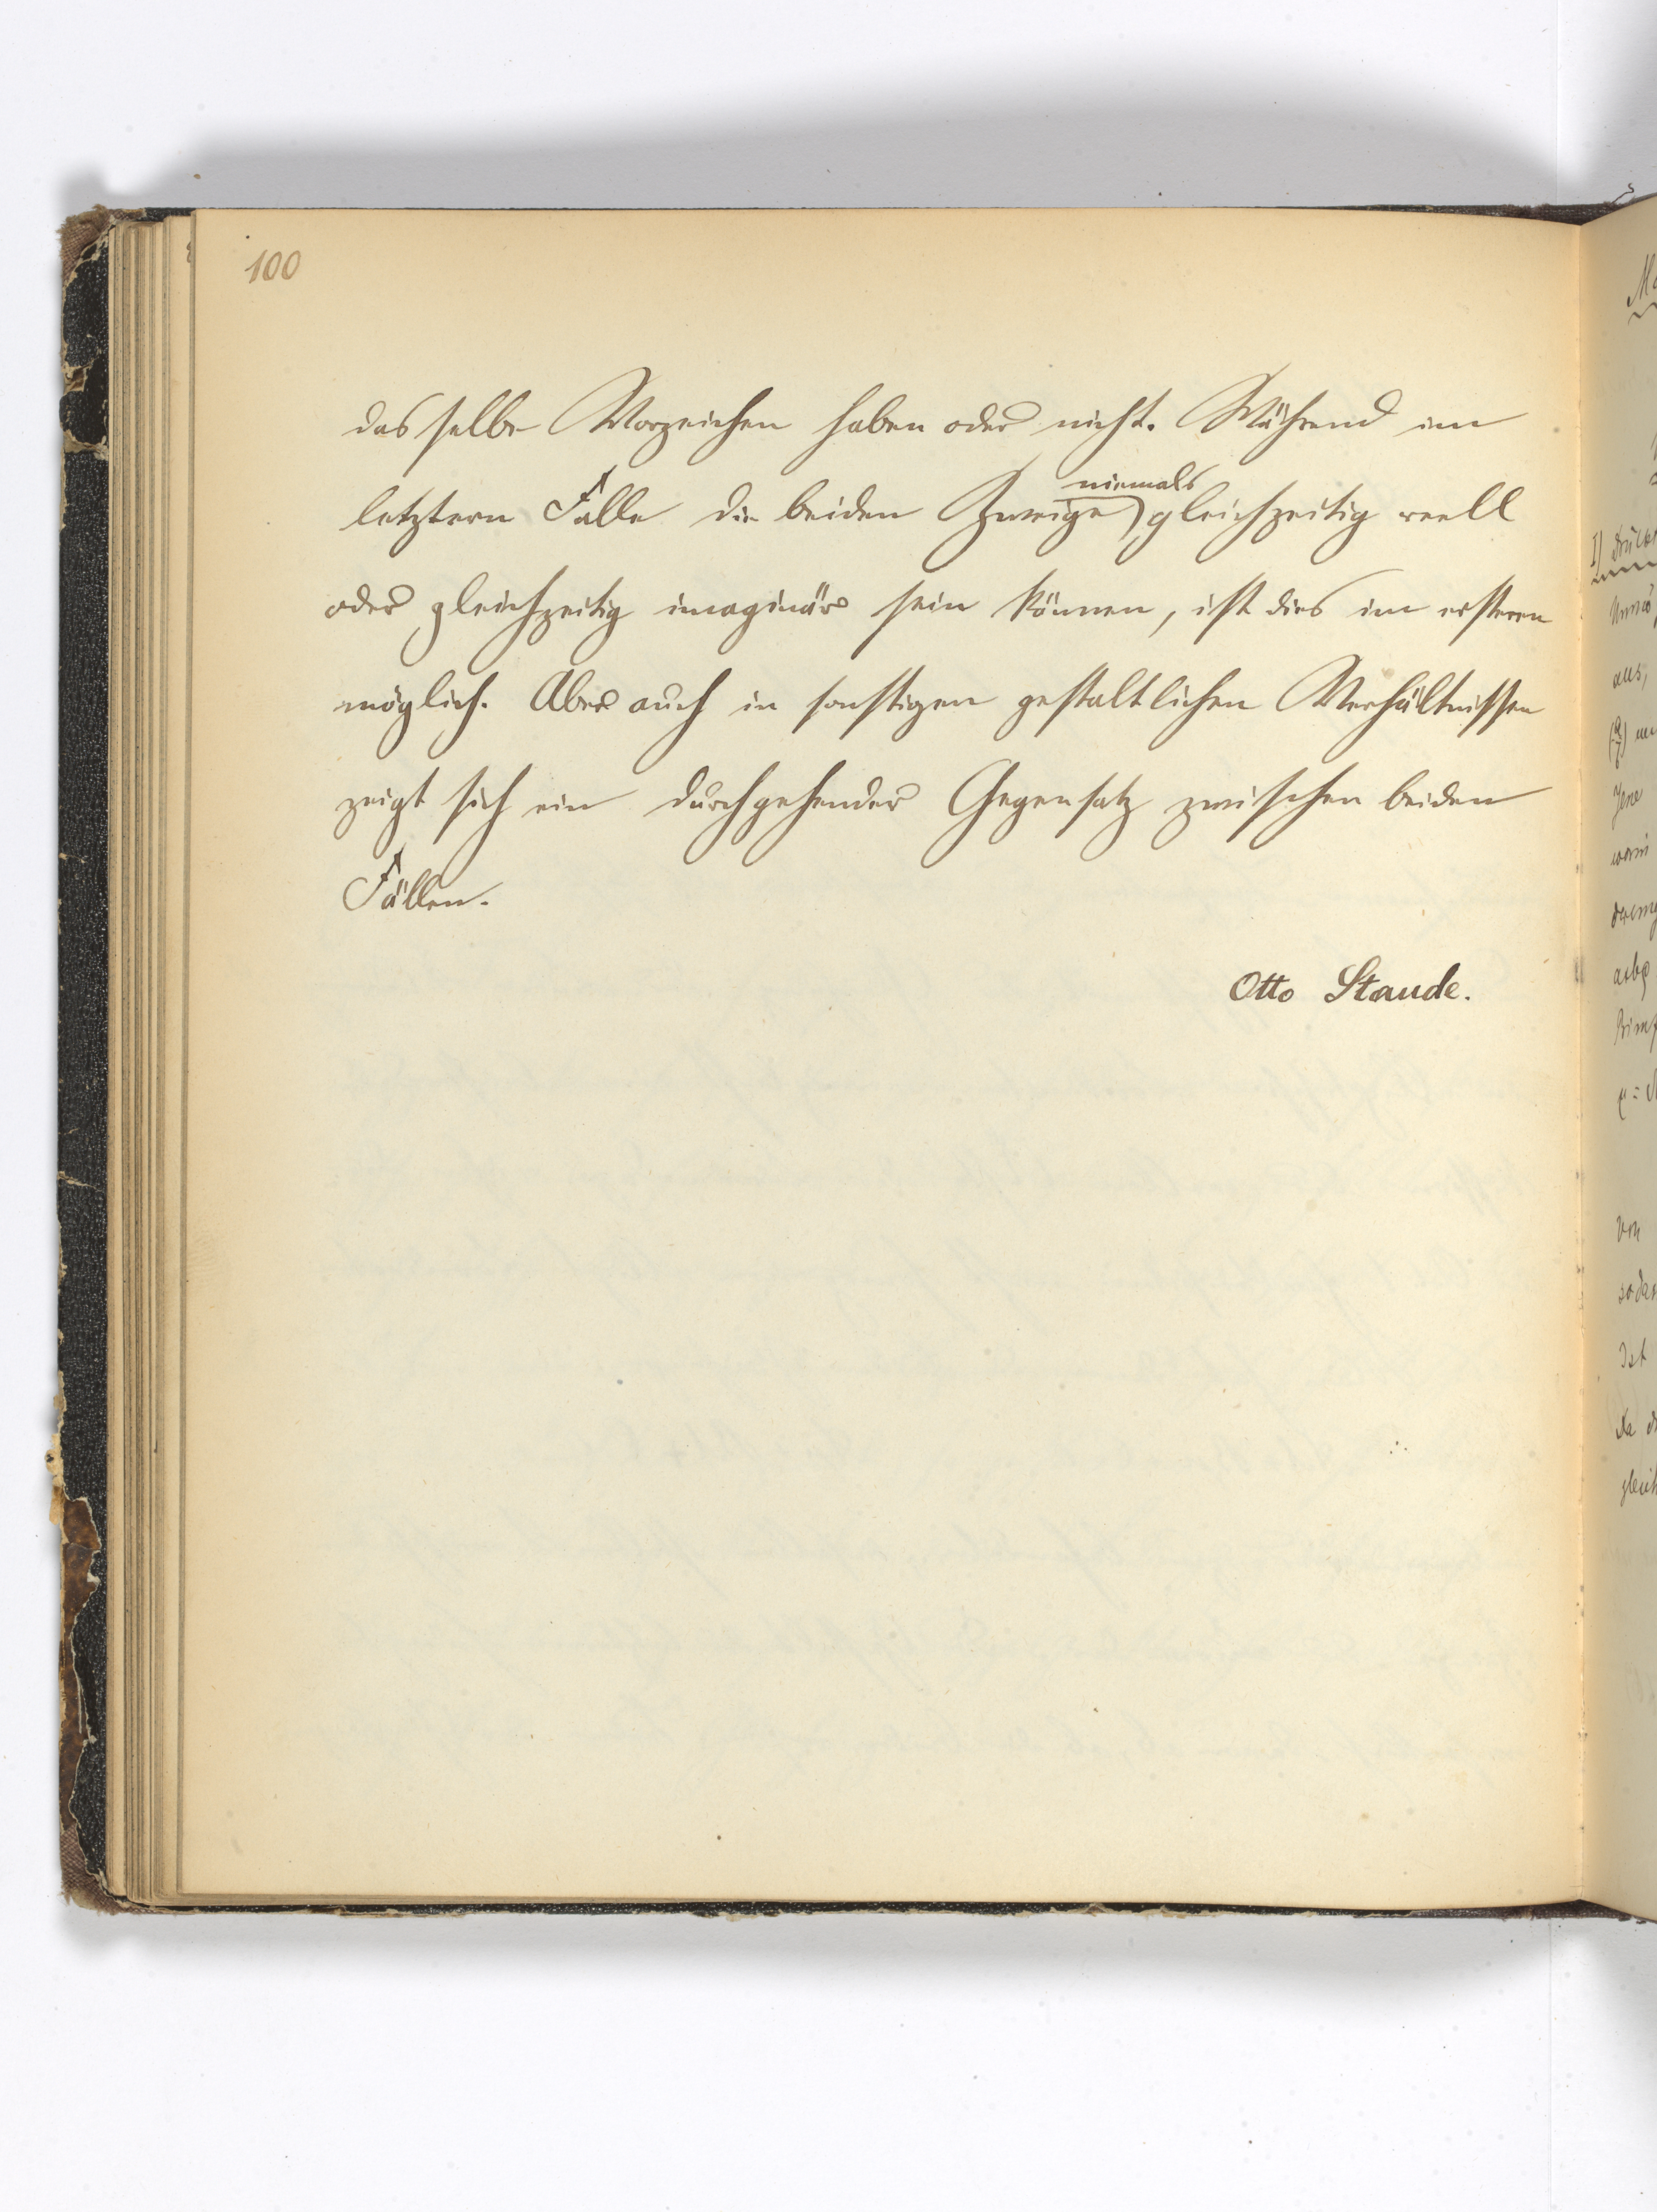 100
dasselbe Vorzeichen haben oder nicht. Während im
niemals
letztern Falle die beiden Zweige gleichzeitig reell
oder gleichzeitig imaginär sein können, ist dies im ersteren
möglich. Aber auch in sonstigen gestaltlichen Verhältnissen
zeigt sich ein durchgehender Gegensatz zwischen beiden
Fällen.
Otto Staude.
aus,
Jene
von
Ist